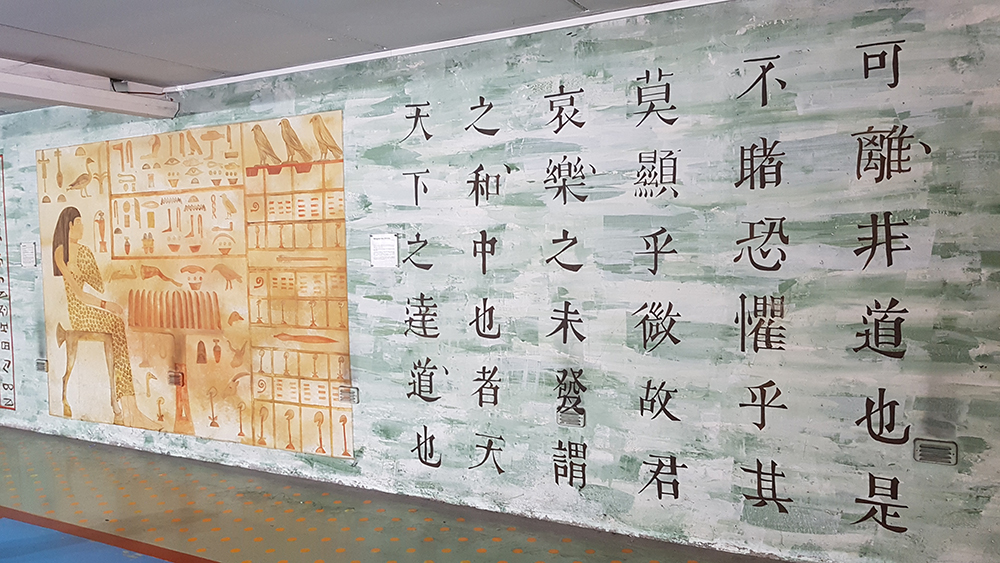 可離非道也是
不睹恐懼乎其
莫顯乎微故君
哀樂之未發謂
之和中也者天
天下之達道也